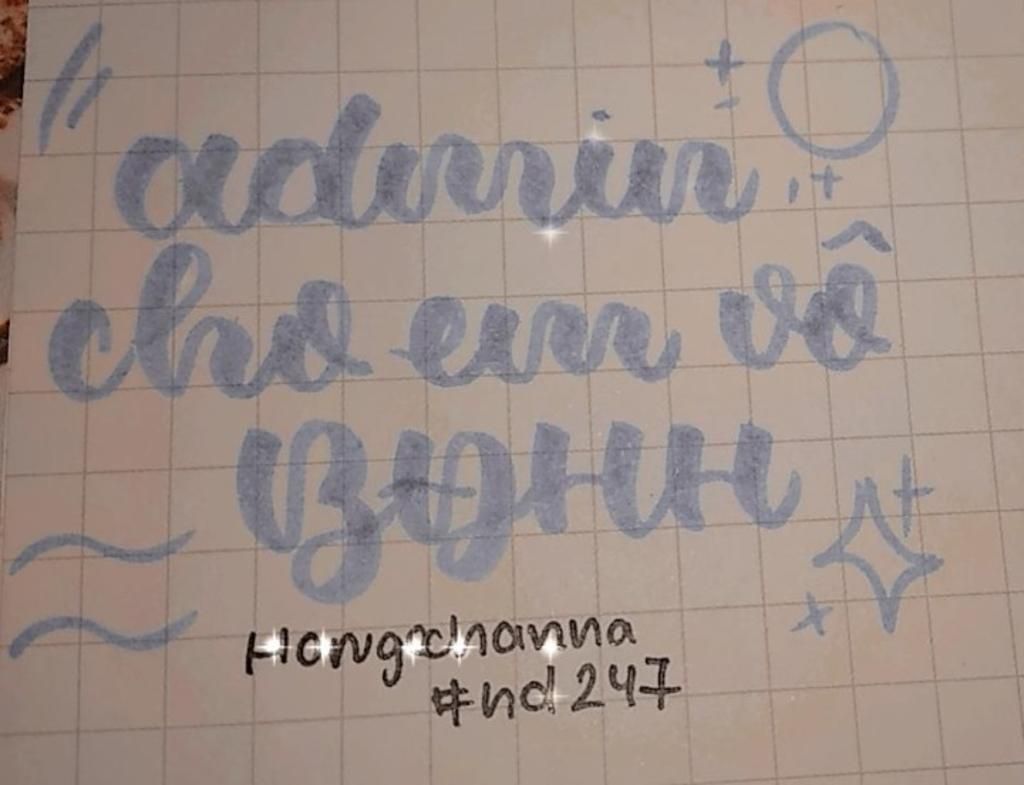 admin
cho em vô
BĐHH
Hongxchanna
#nd247